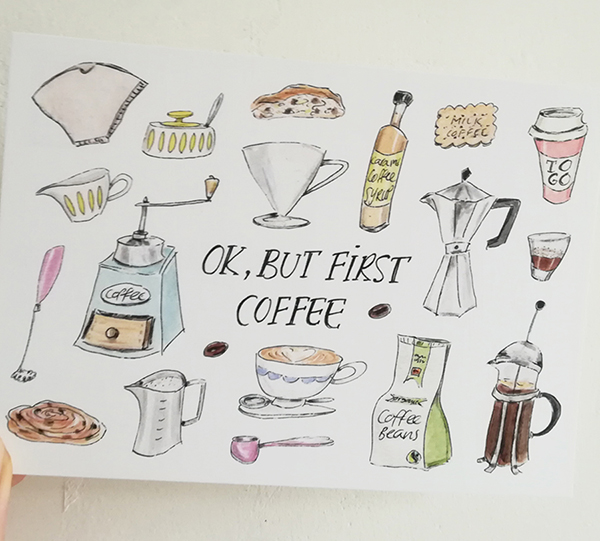 MILK
COFFEE
TO
GO
Coffee
SYRUP
OK, BUT FiRST
COFFEE
Coffee
Coffee
Beans